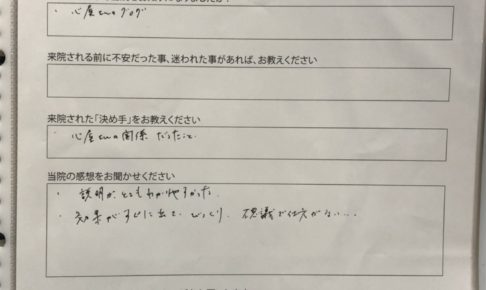 ・心屋さんのブログ
来院される前に不安だった事、迷われた事があれば、お教えください
来院された「決め手」をお教えください
・心屋さんの関係だったこと。
当院の感想をお聞かせください
・説明がとてもわかりやすかった。
・効果がすぐに出て、びっくり、不思議で仕方がない...